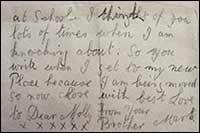 at School. I think of you
lots of times when I am
knocking about. So you
write when I get to my new
Place because I am being moved
so now love with best love
to Dear Molly from your
x x x x x Brother Mark